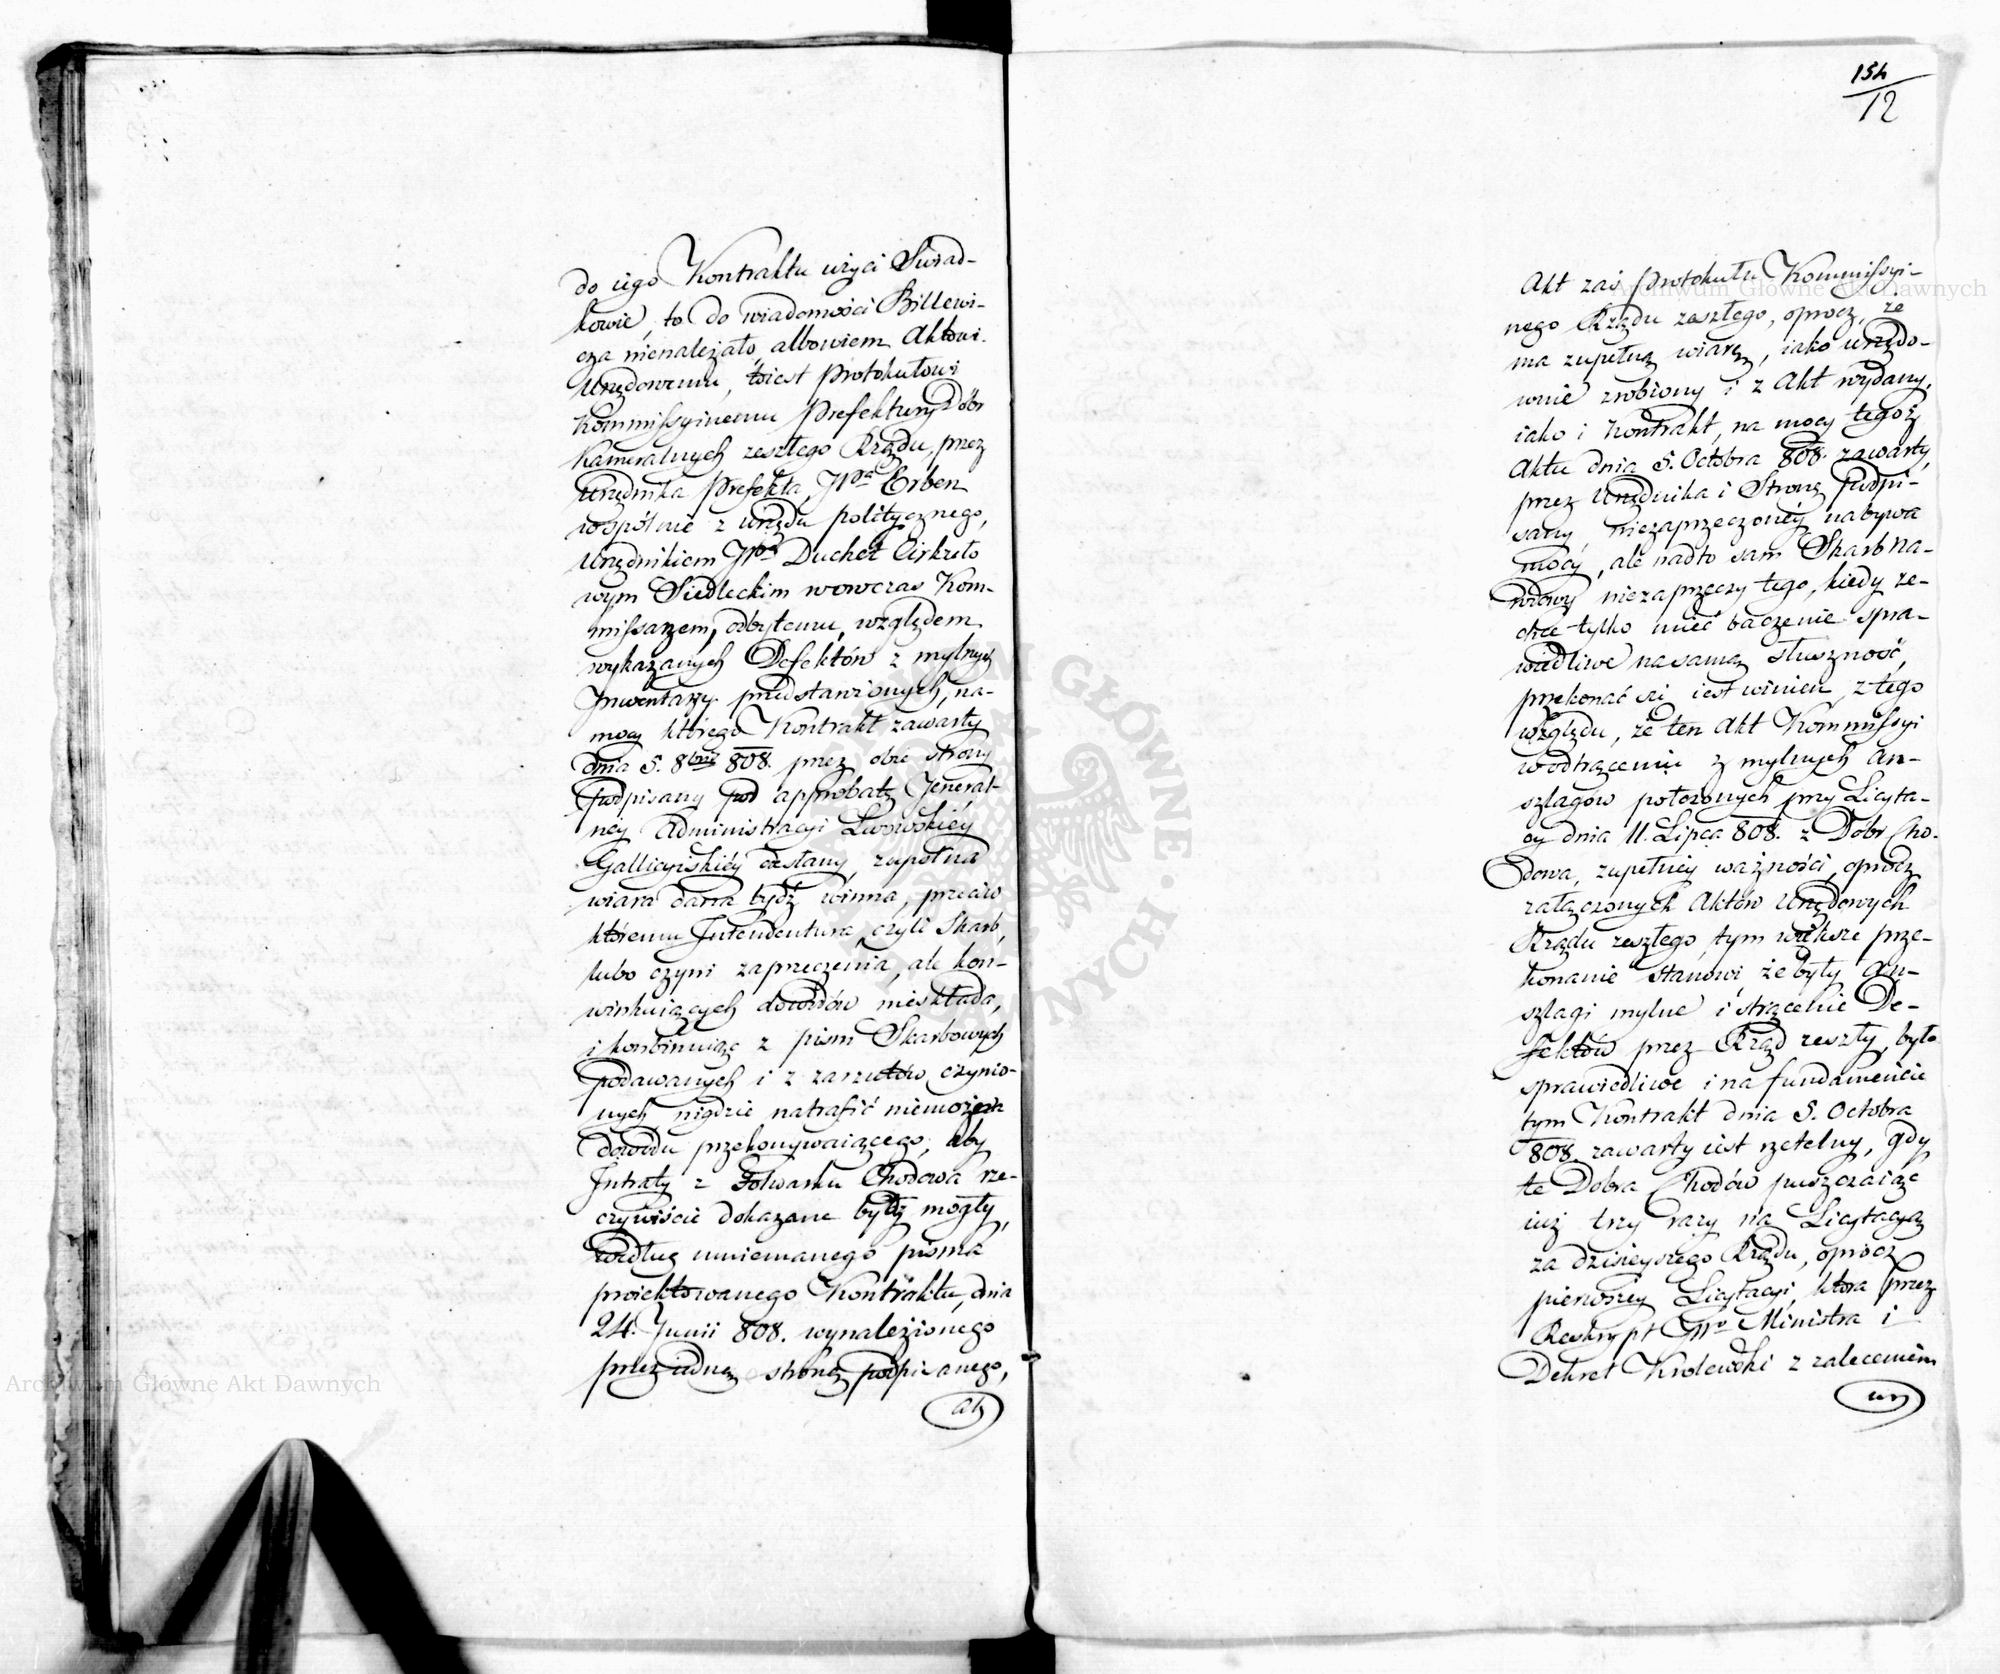 do iego Kontraktu użyci Swiad-
kowie, to do wiadomości Billewi-
cza nienależało, albowiem Aktowi
Urzędowemu, to iest Protokułowi
Kommissyinemu Prefektury Dóbr
Kameralnych zeszłego Rządu, przez
Urzędnika Prefekta, JPa Erben
wspólnie z urzędu politycznego,
Urzędnikiem JPa Duchet Cirkuło
wym Siedleckim wowczas Kom-
missarzem, odbytemu, względem
wykazanych Defektów z mylnych
Jnwentarzy przedstawionych, na-
mocy którego Kontrakt zawarty
dnia 5. 8bris 808. przez obie strony
podpisany pod approbatę Jeneral-
ney Administracyi Lwowskiéy
Gallicyiskiéy odesłany, zupełna
wiara dana bydź winna, przeciw
któremu Intendentura, czyli Skarb,
lubo czyni zaprzeczenia, ale kon-
winkuiących dowodów nieskłada,
i konbinuiąc z pism Skarbowych
podawanych i z zarzutów czynio-
nych nigdzie natrafić niemożem
dowodu przekonywaiącego, aby
Jntraty z Folwarku Chodowa rze-
czywiście dokazane bydź mogły,
według mniemanego pisma
proiektowanego Kontraktu, dnia
24. Junii 808. wynalezionego
przez iedną stronę podpisanego,
Ak
154
12
Akt zaś Protokułu Kommissyi-
nego Rządu zeszłego, oprocz, że
ma zupełną wiarę, iako urzędo-
wnie zrobiony i z Akt wydany,
iako i Kontrakt, na mocy tegoż
Aktu dnia 5. Octobra 808. zawarty,
przez Urzędnika i Stronę podpi-
sany, niezaprzeczonéy nabywa
mocy, ale nadto sam Skarb Na-
rodowy niezaprzeczy tego, kiedy ze-
chce tylko mieć baczenie spra-
wiedliwe na samą słuszność,
przekonać się iest winien, z tego
względu, że ten Akt Kommissyi
w odtrąceniu z mylnych An-
szlagow położonych przy Licyta-
cyi dnia 11. Lipca 808. z Dobr Cho-
dowa, zupełney ważności, oprócz
załączonych Aktów Urzędowych
Rządu zeszłego, tym większe prze-
konanie stanowi, że były An-
szlagi mylne i strącenie De-
fektów przez Rząd zeszły, było
sprawiedliwe i na fundamencie
tym Kontrakt dnia 5. Octobra
808. zawarty iest rzetelny, gdy
te Dobra Chodów puszczaiąc
iuż trzy razy na Licytacyą
za dzisieyszego Rządu, oprocz
pierwszey Licytacyi, która przez
Reskrypt JWo Ministra i
Dekret Krolewski z zaleceniem